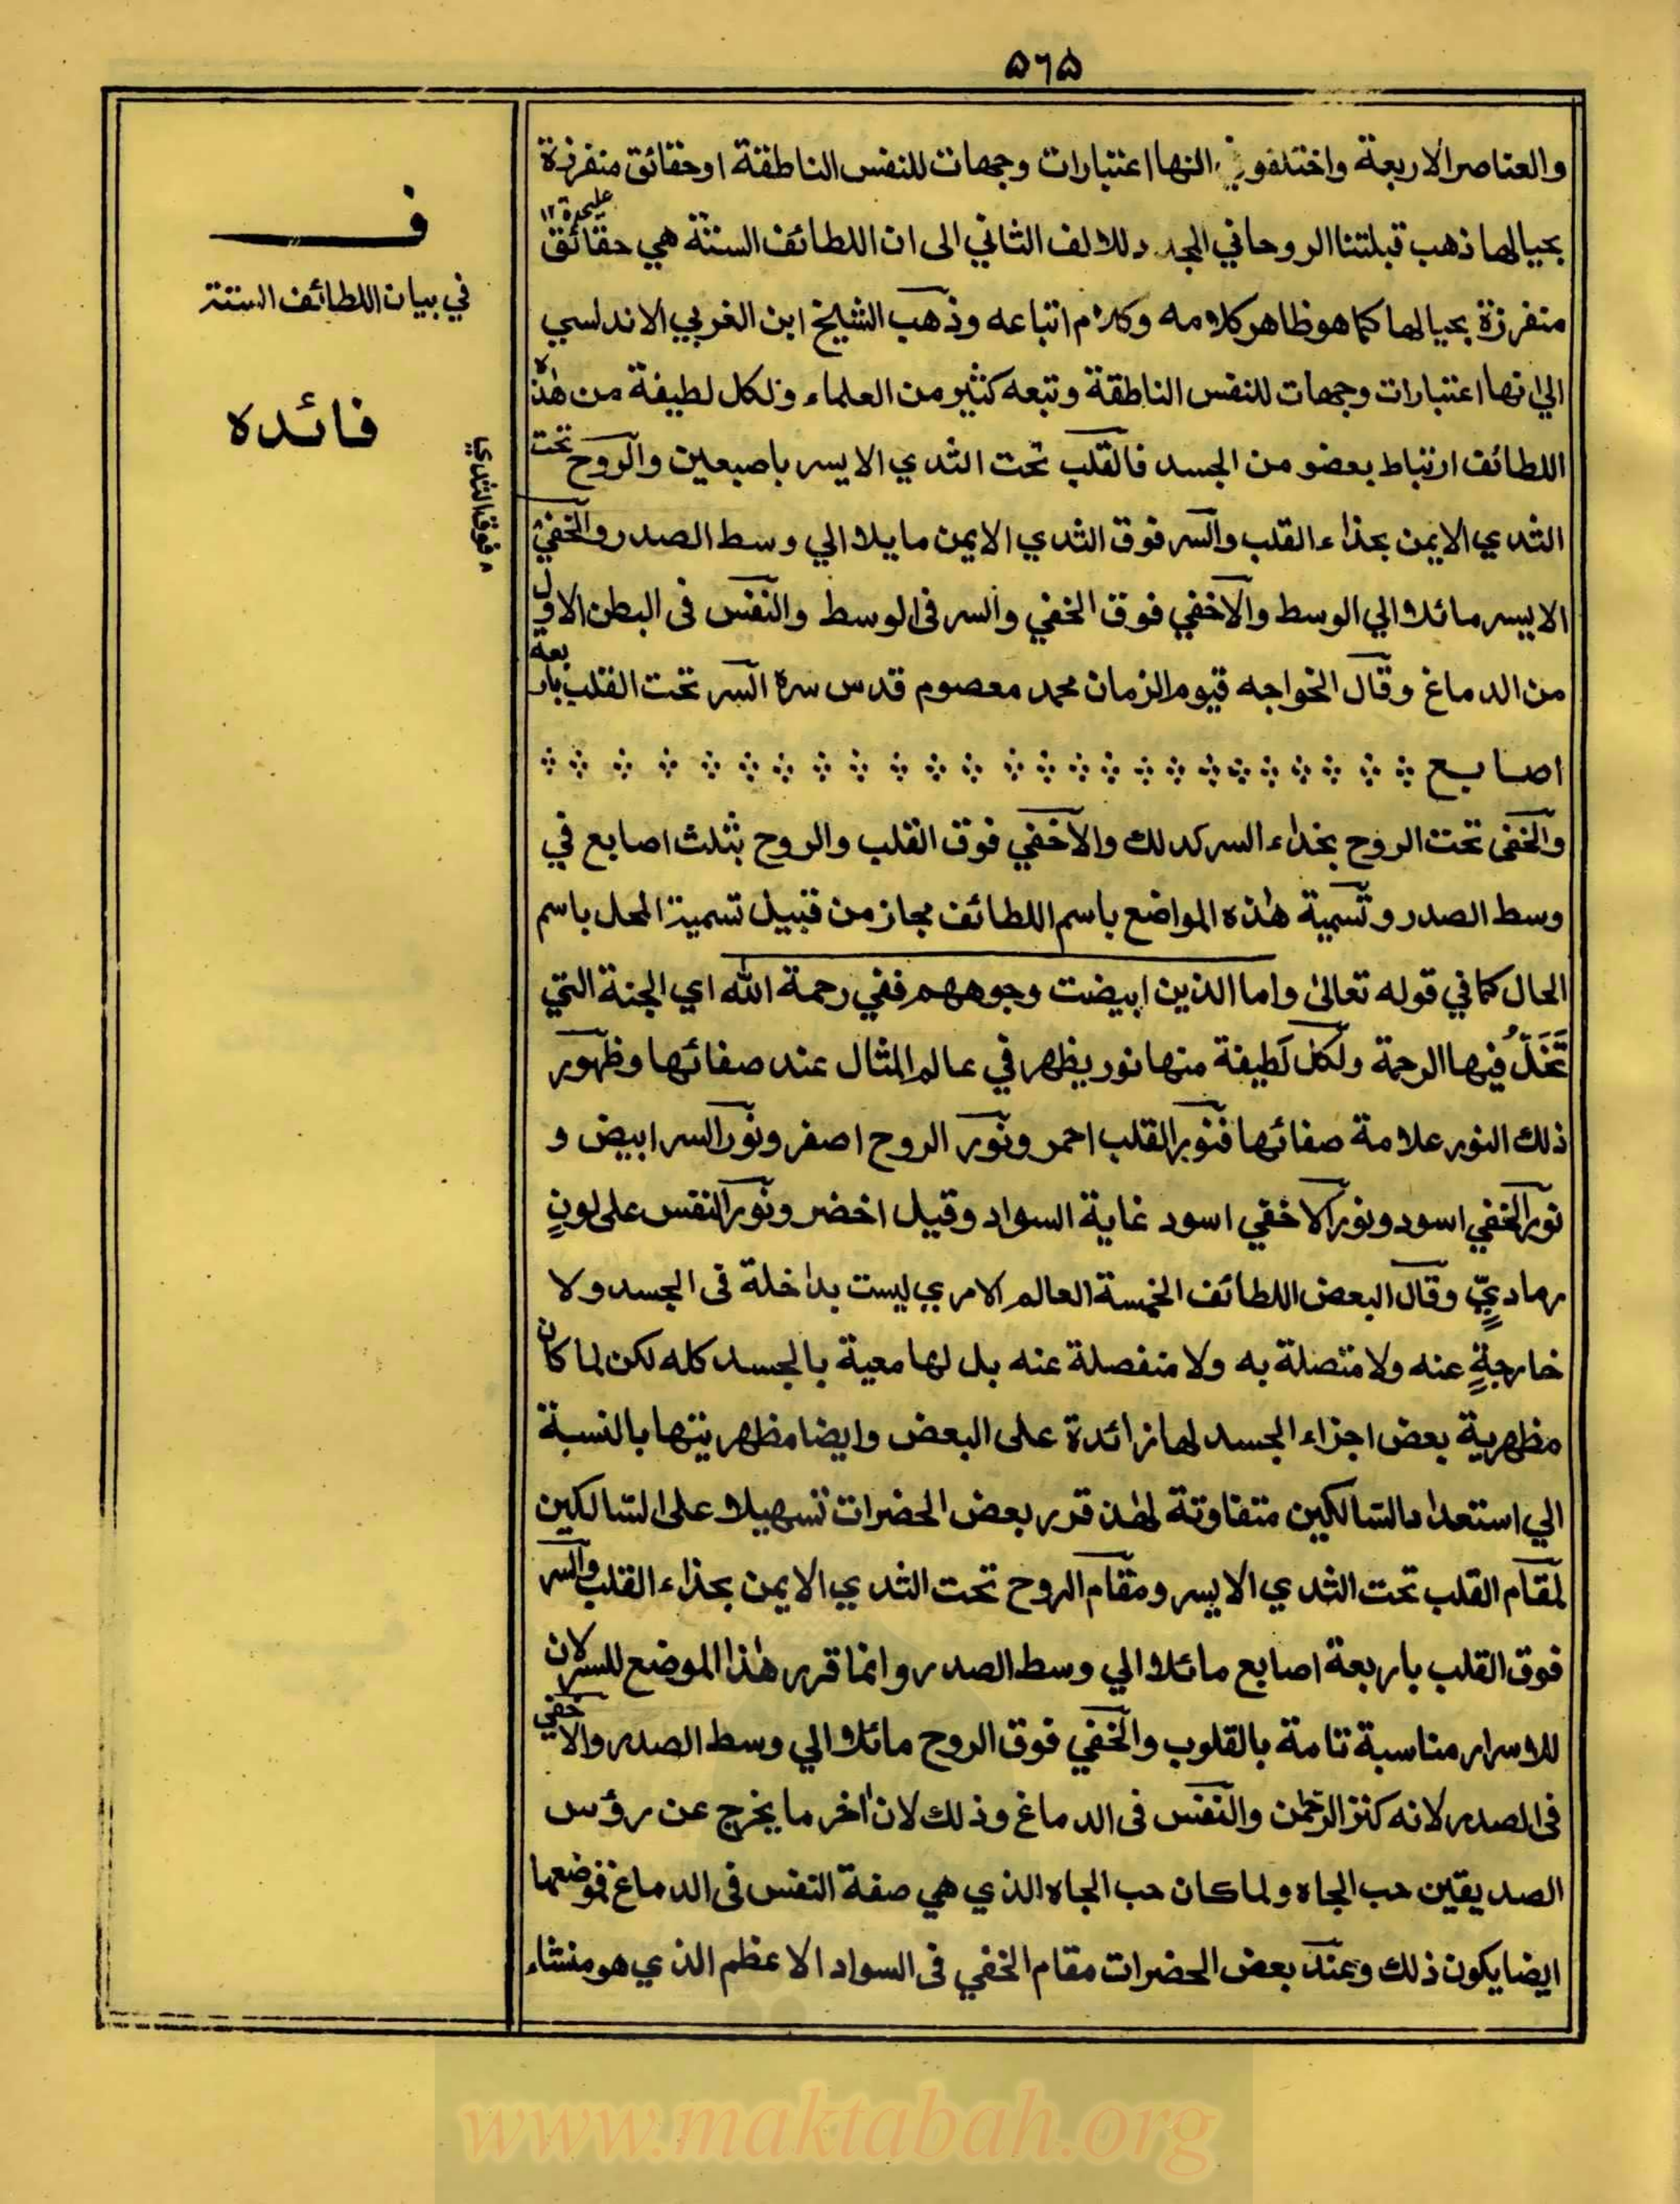 ۵۶۵
والعناصر الاربعة واختلفو في انها اعتبارات وجهات للنفس الناطقة اوحقائق منفرزة
بحيالها ذهب قبلتنا الروحاني المجدد للالف الثاني الى ان اللطائف الستة هي حقائق
عليحدة ۱۲
منفرزة بحيالها كما هو ظاهر كلامه وكلام اتباعه وذهب الشيخ ابن الغربي الاندلسي
الي انها اعتبارات وجهات للنفس الناطقة وتبعه كثير من العلماء ولكل لطيفة من هذه
اللطائف ارتباط بعضو من الجسد فالقلب تحت الثدي الايسر باصبعين والروح تحت
الثدي الايمن بحذاء القلب والسر فوق الثدي الايمن مايلا الي وسط الصدر والخفي
الايسر مائلا الي الوسط والاخفي فوق الخفي والسر في الوسط والنفس في البطن الاول
من الدماغ وقال الخواجه قيوم الزمان محمد معصوم قدس سره السر تحت القلب باربعة
اصابع
والخفى تحت الروح بحذاء السر كذلك والاخفي فوق القلب والروح بثلث اصابع في
وسط الصدر وتسمية هذه المواضع باسم اللطائف مجاز من قبيل تسمية المحل باسم
الحال كما في قوله تعالى واما الذين ابيضت وجوههم ففي رحمة الله اي الجنة التي
تَحَلُّ فيها الرحمة ولكل لطيفة منها نور يظهر في عالم المثال عند صفائها وظهور
ذلك النور علامة صفائها فنور القلب احمر ونور الروح اصفر ونور السر ابيض و
نور الخفي اسود ونور الاخفي اسود غاية السواد وقيل اخضر ونور النفس على لونٍ
رماديٍّ وقال البعض اللطائف الخمسة العالم الامري ليست بداخلة في الجسد ولا
خارجةٍ عنه ولا متصلة به ولا منفصلة عنه بل لها معية بالجسد كله لكن لما كان
مظهرية بعض اجزاء الجسد لها زائدة على البعض وايضا مظهريتها بالنسبة
الي استعداد السالكين متفاوتة لهذا قرر بعض الحضرات تسهيلا على السالكين
لمقام القلب تحت الثدي الايسر ومقام الروح تحت الثدي الايمن بحذاء القلب والسر
فوق القلب باربعة اصابع مائلا الي وسط الصدر وانما قرر هذا الموضع للسر لان
للاسرار مناسبة تامة بالقلوب والخفي فوق الروح مائلا الي وسط الصدر والاخفي
في الصدر لانه كنز الرحمن والنفس في الدماغ وذلك لان اخر ما يخرج عن رؤس
الصديقين حب الجاه ولما كان حب الجاه الذي هي صفة النفس في الدماغ فموضعها
ايضا يكون ذلك وعند بعض الحضرات مقام الخفي في السواد الاعظم الذي هو منشاء
ف
في بيان اللطائف الستة
فائده
فوق الثدي
www.maktabah.org